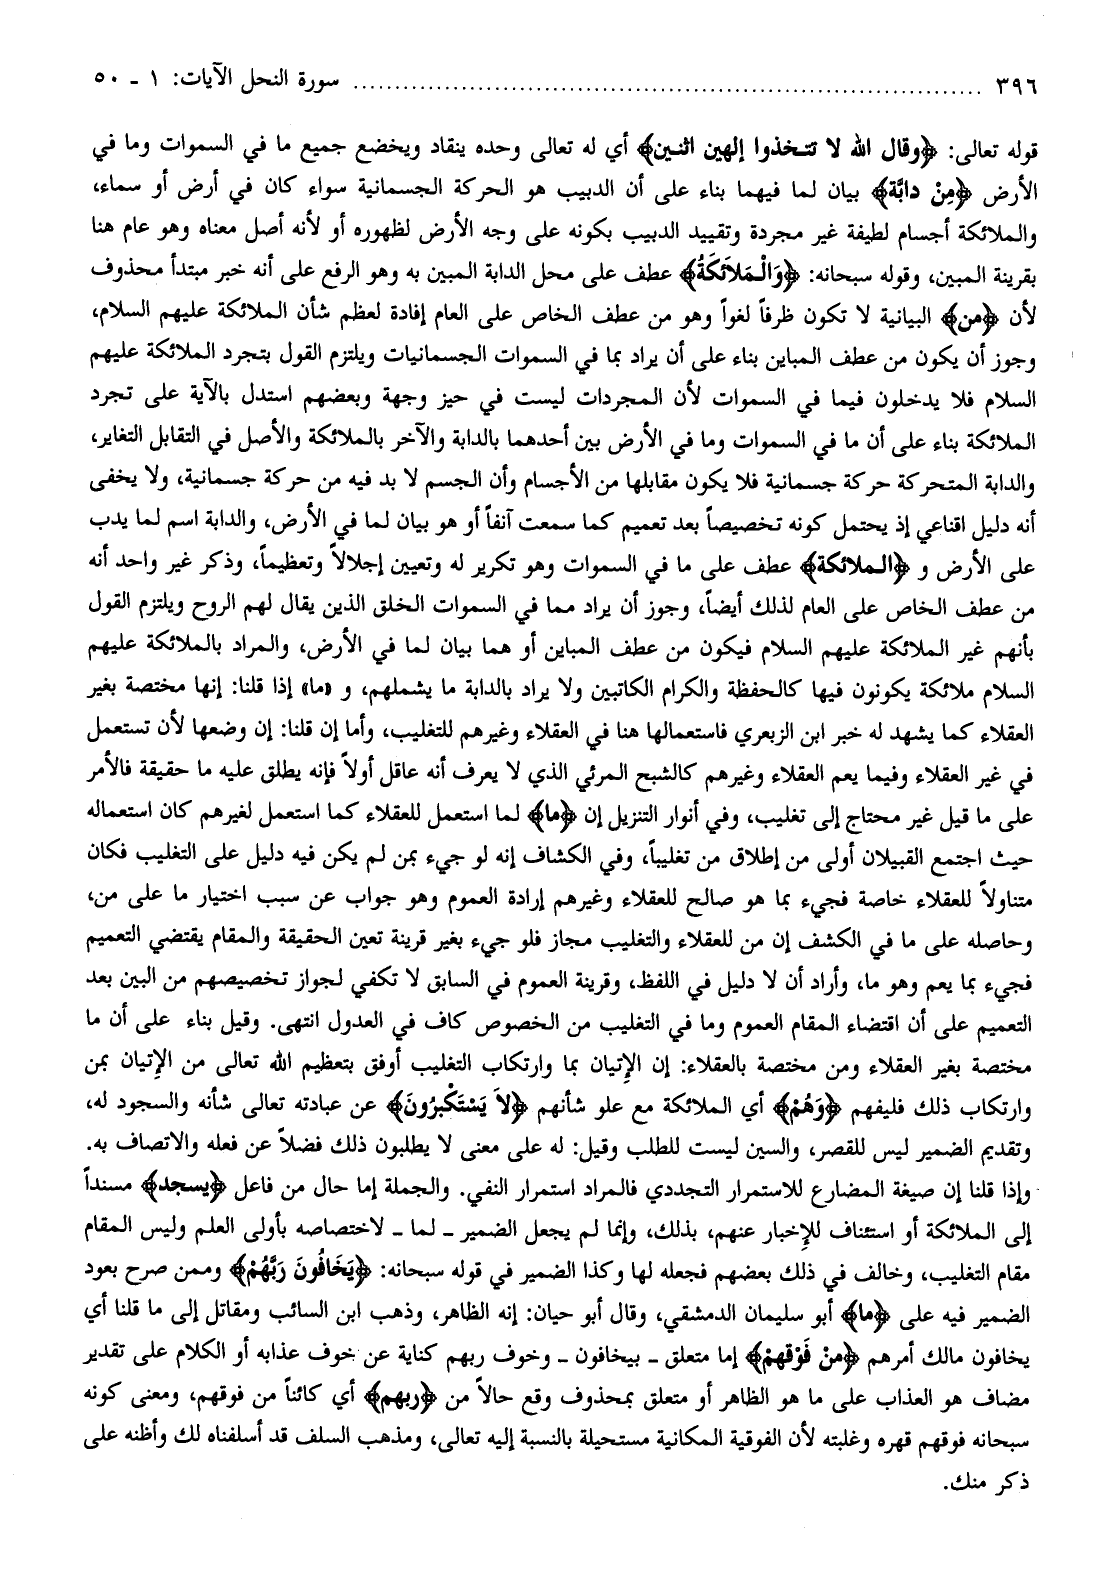 ٣٩٦ ........................ سورة النحل الآيات: ١ ـ ٥٠
قوله تعالى: ﴿وقال الله لا تتخذوا إلهين اثنين﴾ أي له تعالى وحده ينقاد ويخضع جميع ما في السموات وما في
الأرض ﴿مِنْ دابَّة﴾ بيان لما فيهما بناء على أن الدبيب هو الحركة الجسمانية سواء كان في أرض أو سماء،
والملائكة أجسام لطيفة غير مجردة وتقييد الدبيب بكونه على وجه الأرض لظهوره أو لأنه أصل معناه وهو عام هنا
بقرينة المبين، وقوله سبحانه: ﴿وَالْمَلاَئكَةُ﴾ عطف على محل الدابة المبين به وهو الرفع على أنه خبر مبتدأ محذوف
لأن ﴿من﴾ البيانية لا تكون ظرفاً لغواً وهو من عطف الخاص على العام إفادة لعظم شأن الملائكة عليهم السلام،
وجوز أن يكون من عطف المباين بناء على أن يراد بما في السموات الجسمانيات ويلتزم القول بتجرد الملائكة عليهم
السلام فلا يدخلون فيما في السموات لأن المجردات ليست في حيز وجهة وبعضهم استدل بالآية على تجرد
الملائكة بناء على أن ما في السموات وما في الأرض بين أحدهما بالدابة والآخر بالملائكة والأصل في التقابل التغاير،
والدابة المتحركة حركة جسمانية فلا يكون مقابلها من الأجسام وأن الجسم لا بد فيه من حركة جسمانية، ولا يخفى
أنه دليل اقناعي إذ يحتمل كونه تخصيصاً بعد تعميم كما سمعت آنفاً أو هو بيان لما في الأرض، والدابة اسم لما يدب
على الأرض و ﴿الملائكة﴾ عطف على ما في السموات وهو تكرير له وتعيين إجلالاً وتعظيماً، وذكر غير واحد أنه
من عطف الخاص على العام لذلك أيضاً، وجوز أن يراد مما في السموات الخلق الذين يقال لهم الروح ويلتزم القول
بأنهم غير الملائكة عليهم السلام فيكون من عطف المباين أو هما بيان لما في الأرض، والمراد بالملائكة عليهم
السلام ملائكة يكونون فيها كالحفظة والكرام الكاتبين ولا يراد بالدابة ما يشملهم، و «ما» إذا قلنا: إنها مختصة بغير
العقلاء كما يشهد له خبر ابن الزبعري فاستعمالها هنا في العقلاء وغيرهم للتغليب، وأما إن قلنا: إن وضعها لأن تستعمل
في غير العقلاء وفيما يعم العقلاء وغيرهم كالشبح المرئي الذي لا يعرف أنه عاقل أولاً فإنه يطلق عليه ما حقيقة فالأمر
على ما قيل غير محتاج إلى تغليب، وفي أنوار التنزيل إن ﴿ما﴾ لما استعمل للعقلاء كما استعمل لغيرهم كان استعماله
حيث اجتمع القبيلان أولى من إطلاق من تغليباً، وفي الكشاف إنه لو جيء بمن لم يكن فيه دليل على التغليب فكان
متناولاً للعقلاء خاصة فجيء بما هو صالح للعقلاء وغيرهم إرادة العموم وهو جواب عن سبب اختيار ما على من،
وحاصله على ما في الكشف إن من للعقلاء والتغليب مجاز فلو جيء بغير قرينة تعين الحقيقة والمقام يقتضي التعميم
فجيء بما يعم وهو ما، وأراد أن لا دليل في اللفظ، وقرينة العموم في السابق لا تكفي لجواز تخصيصهم من البين بعد
التعميم على أن اقتضاء المقام العموم وما في التغليب من الخصوص كاف في العدول انتهى. وقيل بناء على أن ما
مختصة بغير العقلاء ومن مختصة بالعقلاء: إن الإتيان بما وارتكاب التغليب أوفق بتعظيم الله تعالى من الإتيان بمن
وارتكاب ذلك فليفهم ﴿وَهُمْ﴾ أي الملائكة مع علو شأنهم ﴿لاَ يَسْتَكْبِرُونَ﴾ عن عبادته تعالى شأنه والسجود له،
وتقديم الضمير ليس للقصر، والسين ليست للطلب وقيل: له على معنى لا يطلبون ذلك فضلاً عن فعله والاتصاف به.
وإذا قلنا إن صيغة المضارع للاستمرار التجددي فالمراد استمرار النفي. والجملة إما حال من فاعل ﴿يسجد﴾ مسنداً
إلى الملائكة أو استئناف للإخبار عنهم، بذلك، وإنما لم يجعل الضمير ـ لما ـ لاختصاصه بأولى العلم وليس المقام
مقام التغليب، وخالف في ذلك بعضهم فجعله لها وكذا الضمير في قوله سبحانه: ﴿يَخَافُونَ رَبَّهُمْ﴾ وممن صرح بعود
الضمير فيه على ﴿ما﴾ أبو سليمان الدمشقي، وقال أبو حيان: إنه الظاهر، وذهب ابن السائب ومقاتل إلى ما قلنا أي
يخافون مالك أمرهم ﴿مِنْ فَوْقهمْ﴾ إما متعلق ـ بيخافون ـ وخوف ربهم كناية عن خوف عذابه أو الكلام على تقدير
مضاف هو العذاب على ما هو الظاهر أو متعلق بمحذوف وقع حالاً من ﴿ربهم﴾ أي كائناً من فوقهم، ومعنى كونه
سبحانه فوقهم قهره وغلبته لأن الفوقية المكانية مستحيلة بالنسبة إليه تعالى، ومذهب السلف قد أسلفناه لك وأظنه على
ذكر منك.